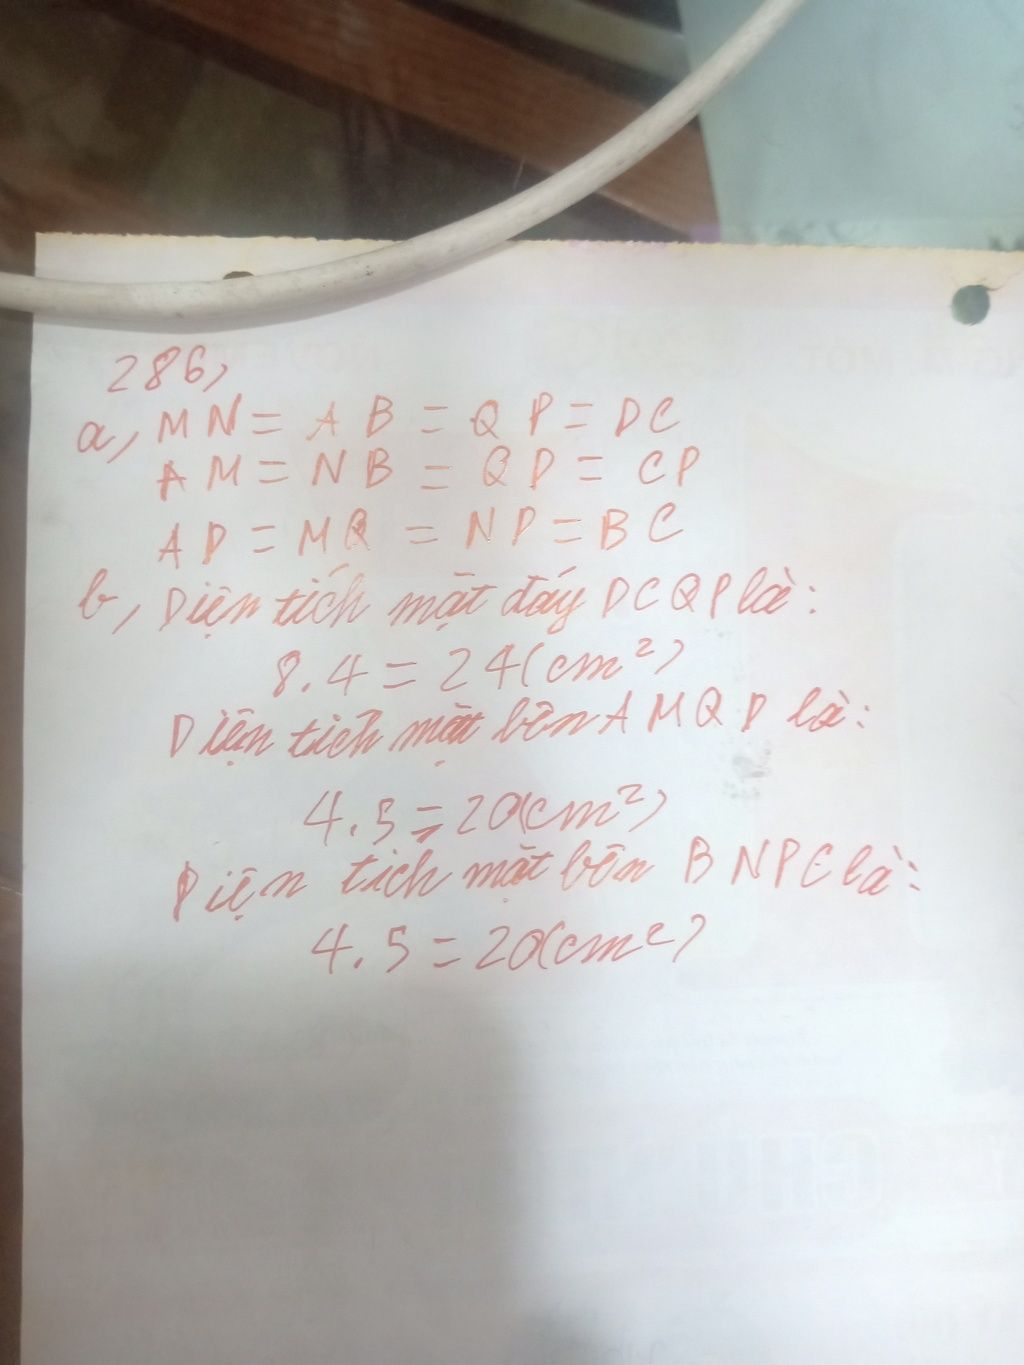 286,
a, MN = AB = QP = DC
AM = NB = QD = CP
AD = MQ = NP = BC
b, Diện tích mặt đáy DCQP là:
8.4 = 24(cm²)
Diện tích mặt bên AMQD là:
4.5 = 20(cm²)
Diện tích mặt bên BNPC là:
4.5 = 20(cm²)